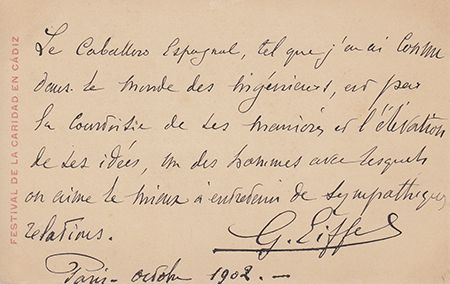 FESTIVAL DE LA CARIDAD EN CÁDIZ
Le Caballero Espagnol, tel que j'en ai connu
dans le monde des ingénieurs, est par
la courtoisie de ses manières et l'élévation
de ses idées, un des hommes avec lesquels
on aime le mieux à entretenir de sympathiques
relations.
G. Eiffel
Paris - octobre 1902. -